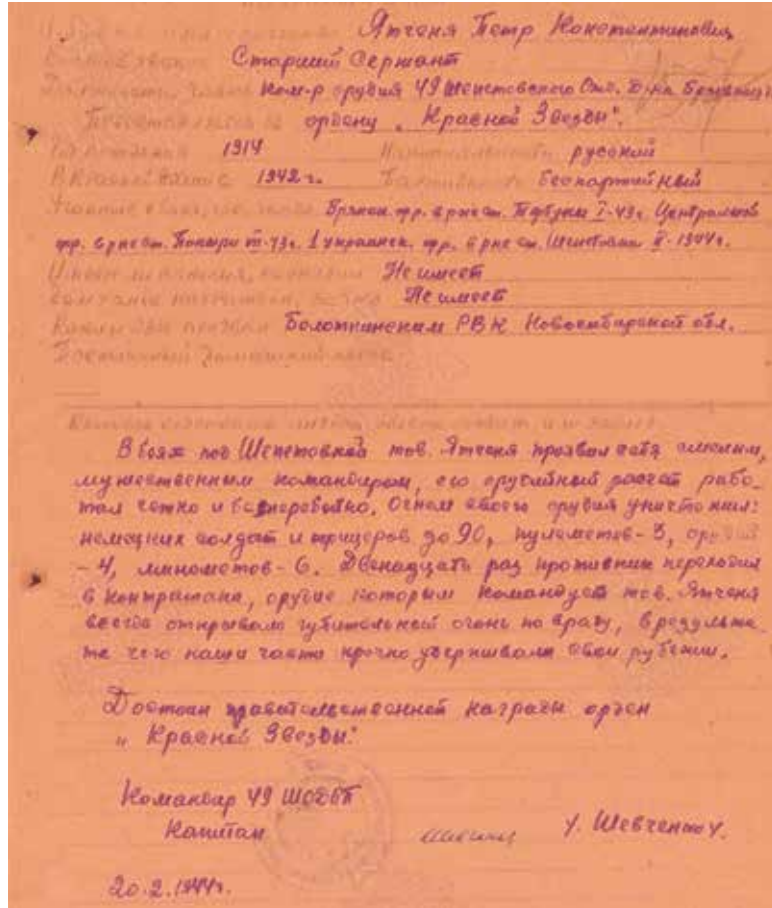 Ятченя Петр Константинович
Старший Сержант
Ком-р орудия 49 Шепетовского Отд. Б-на Бронепоезд
Представляется ордену „Красной Звезды".
1914 Национальность русский
1942 г. Партийность беспартийный
Брянск. фр. в рне ст. I-43г. Центральной
фр. в рне ст. Поныри III-43г. 1 украинск. фр. в рне ст. Шепетовки II-1944г.
Не имеет
Не имеет
Каким РВК призван Болотнинским РВК Новосибирской обл.
Постоянный домашний адрес
В боях под Шепетовкой тов. Ятченя проявил себя смелым,
мужественным командиром, его орудийный расчет рабо-
тал четко и бесперебойно. Огнем своего орудия уничтожил:
немецких солдат и офицеров до 90, пулеметов-3, орудий
-4, минометов-6. Двенадцать раз противник переходил
в контратаки, орудие которым командует тов. Ятченя
всегда открывало губительный огонь по врагу, в результа-
те чего наши части прочно удерживали свои рубежи.
Достоин правительственной награды орден
„Красной Звезды".
Командир 49 ШОДБП
Капитан /. Шевченко /.
20.2.1944г.